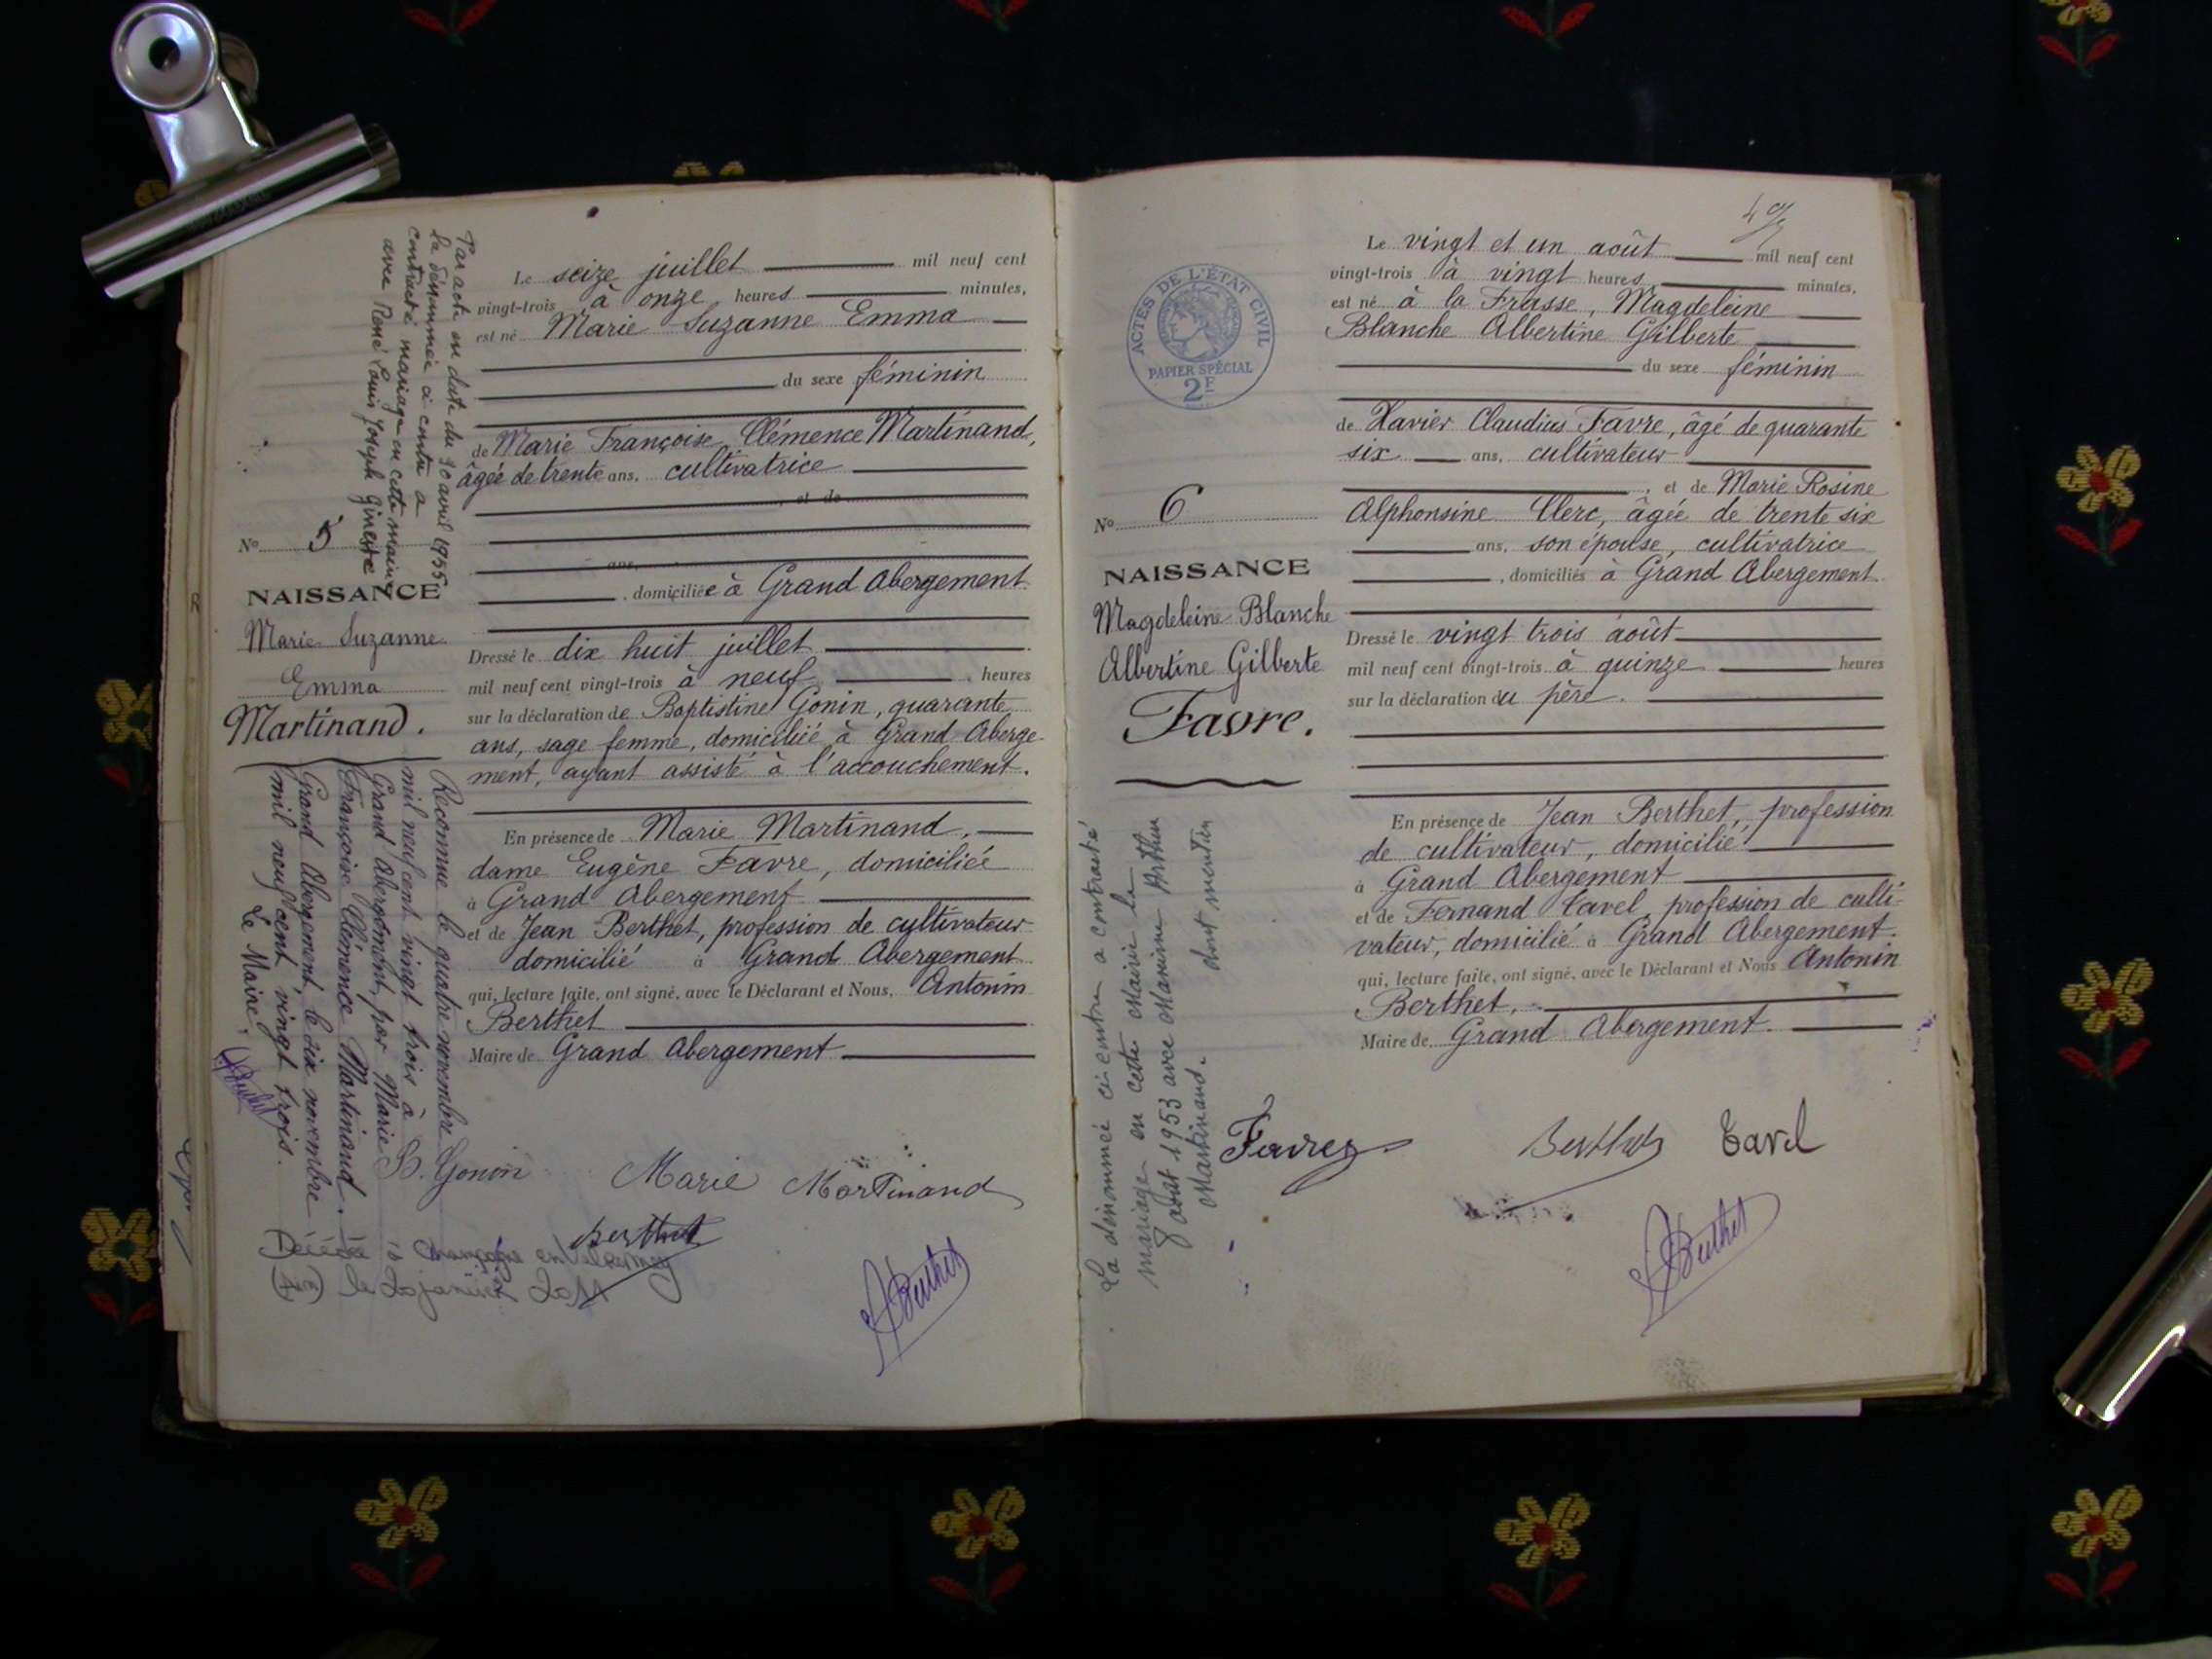 Par acte en date du 30 avril 1955
la dénommée ci contre a
contracté mariage en cette mairie
avec René Louis Joseph Gineste
No 5
NAISSANCE
Marie Suzanne
Emma
Martinand.
Reconnue le quatre novembre
mil neuf cent vingt trois à
Grand Abergement, par Marie
Françoise Clémence Martinand.
Grand Abergement, le six novembre
mil neuf cent vingt trois.
Le Maire,
ABerthet
Le seize juillet mil neuf cent
vingt-trois à onze heures minutes,
est né Marie Suzanne Emma
du sexe féminin
de Marie Françoise Clémence Martinand,
âgée de trente ans, cultivatrice
, et de
ans,
, domiciliée à Grand Abergement
Dressé le dix huit juillet
mil neuf cent vingt-trois à neuf heures
sur la déclaration de Baptistine Gonin, quarante
ans, sage femme, domiciliée à Grand Aberge-
ment, ayant assisté à l'accouchement.
En présence de Marie Martinand,
dame Eugène Favre, domiciliée
à Grand Abergement
et de Jean Berthet, profession de cultivateur
domicilié à Grand Abergement
qui, lecture faite, ont signé, avec le Déclarant et Nous, Antonin
Berthet
Maire de Grand Abergement
B. Gonin Marie Martinand
Berthet
Décédée à
le 20 janvier 2011
ABerthet
ACTES DE L'ÉTAT CIVIL
PAPIER SPÉCIAL
2F
No 6
NAISSANCE
Magdeleine Blanche
Albertine Gilberte
Favre.
La dénommée ci-contre a contracté
mariage en cette Mairie le
8 août 1953 avec Maxime Arthur
Martinand. dont mention
Le vingt et un août mil neuf cent
vingt-trois à vingt heures minutes,
est né à la Frasse, Magdeleine
Blanche Albertine Gilberte
du sexe féminin
de Xavier Claudius Favre, âgé de quarante
six ans, cultivateur
, et de Marie Rosine
Alphonsine Clerc, âgée de trente six
ans, son épouse, cultivatrice
, domiciliés à Grand Abergement.
Dressé le vingt trois août
mil neuf cent vingt-trois à quinze heures
sur la déclaration du père.
En présence de Jean Berthet, profession
de cultivateur, domicilié
à Grand Abergement
et de Fernand Tavel, profession de culti-
vateur, domicilié à Grand Abergement.
qui, lecture faite, ont signé, avec le Déclarant et Nous Antonin
Berthet,
Maire de Grand Abergement.
Favre Berthet Tavel
ABerthet